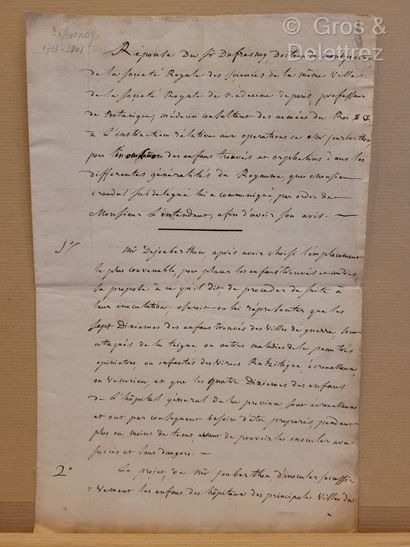 © Gros &
Delettrez
Dufresnoy
1733-1801
Réponse Du Sr Dufresnoy Docteur de montpellier
de la Société Royale des sciences de la même Ville
de la Société Royale de médecine de paris, professeur
de Botanique, médecin consultant des armées du Roi &c
a L'instruction relative aux operations de Mr jouberthon
pour l'inoculation des enfans trouvés et orphelins dans les
differentes généralités du Royaume, que Monsieur
Crendal subdelegué lui a communiqué par ordre de
Monsieur L'intendant, afin d'avoir son avis. —
1° Mr Dejouberthon, après avoir choisi l'emplacement
le plus convenable, pour placer les enfans trouvés et autres,
se propose à ce qu'il dit de proceder de suite à
leur inoculation, oseroit-on lui representer que les
sept Dixiemes des enfans trouvés des Villes de guerre, sont
attaqués de la teigne ou autres maladies de la peau très
opiniatres, ou infectés des virus Rakitique écrouelleux
ou Venerien et que les quatre Dixiemes des enfans
de L'hôpital général de la province, sont écrouelleux
et ont par consequent besoin d'être preparés, pendant
plus ou moins de tems, avant de pouvoir les inoculer avec
succès et sans dangers. —
2° Le projet, de Mr jouberthon d'inoculer successi-
=vement les enfans des hôpitaux des principales Villes du